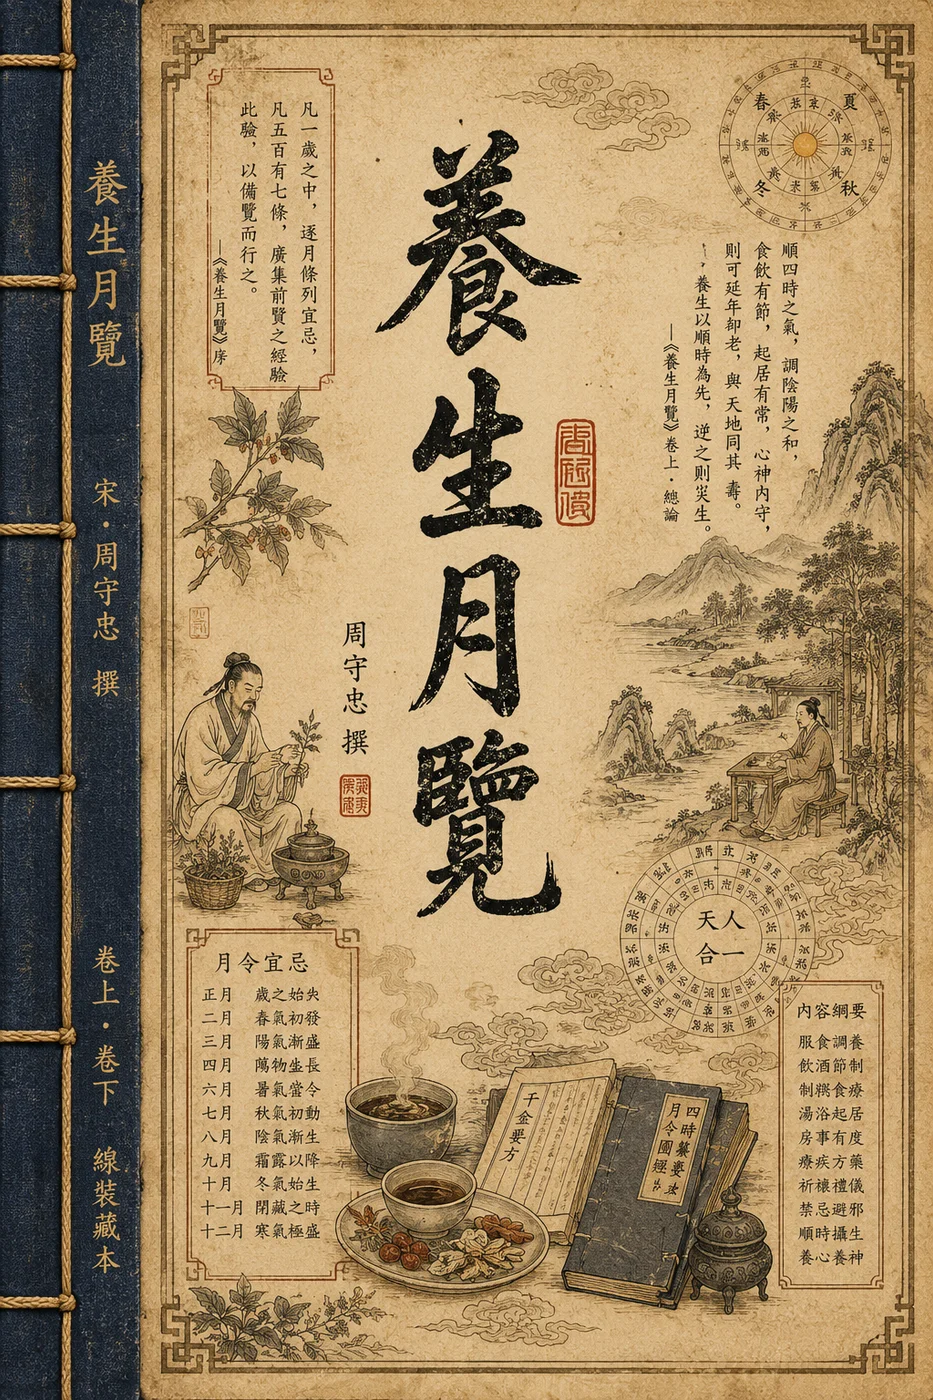 養生月覽
宋・周守忠 撰
卷上・卷下
線裝藏本
凡一歲之中，逐月條列宜忌，
凡五百有七條，廣集前賢之經驗
此驗，以備覽而行之。
—《養生月覽》序
養生月覽
周守忠 撰
春
夏
秋
冬
順四時之氣，調陰陽之和，
食飲有節，起居有常，心神內守，
則可延年卻老，與天地同其壽。
養生以順時為先，逆之則災生。
—《養生月覽》卷上・總論
天人合一
月令宜忌
正月 歲之始失
二月 春氣初發
三月 陽氣漸盛
四月 萬物生長
六月 暑氣當令
七月 秋氣初動
八月 陰氣漸生
九月 霜露以降
十月 冬氣始生
十一月 閉藏之時
十二月 寒氣極盛
千金要方
四時纂要
月令圖經
內容綱要
服食調養
飲酒節制
湯糕食療
房浴起居
療事有度
祈疾方藥
禁禳禮儀
順忌避邪
養時攝生
心養神